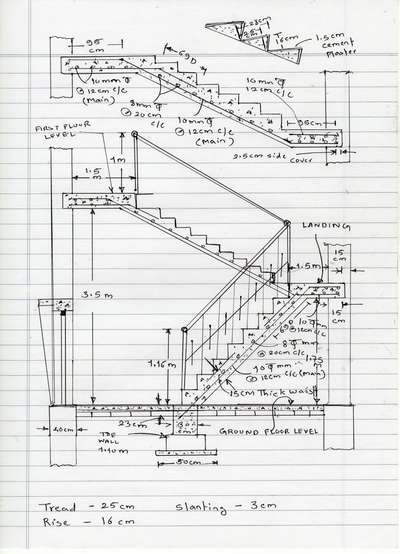 95
cm
69D
23cm
25
16cm
1.5cm
cement
Plaster
10mm φ
@ 12cm c/c
(Main)
8mm φ
@ 20cm
c/c
10mm φ
@ 12cm c/c
(Main)
10mm φ
12cm c/c
95cm
2.5cm side
cover
FIRST FLOOR
LEVEL
1m
1.5
m
LANDING
1.5m
15
cm
3.5m
15
cm
10 φ mm
@ 12cm c/c
8 φ mm
@ 20cm c/c
1.75
m
10 φ mm
@ 12cm c/c (main)
1.16m
15cm Thick waist
23cm
TOE
WALL
1.10m
GROUND FLOOR LEVEL
40cm
50cm
Tread - 25cm
Slanting - 3cm
Rise - 16cm